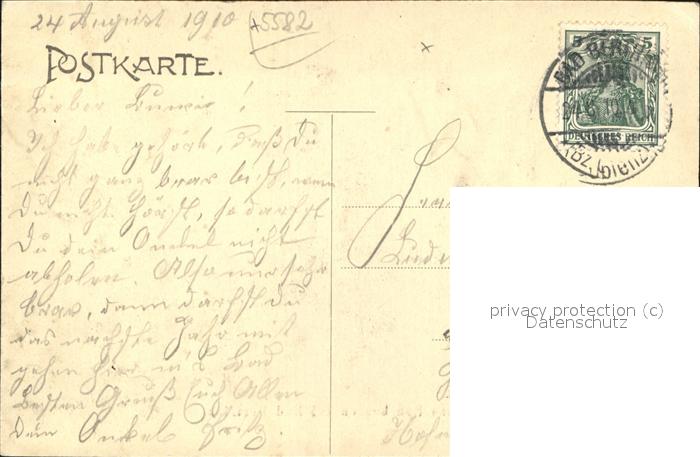 24 August 1910
5582
POSTKARTE.
Lieber Ludwig!
Ich habe gehört, daß Du
nicht ganz brav bist, wenn
Du nicht hörst, so darfst
Du dein Onkel nicht
abholen. Also nur sehr
brav, dann darfst Du
das nächste Jahr mit
gehen hier in's Bad
Besten Gruß Euch Allen
Dein Onkel Fritz.
5 5
DEUTSCHES REICH
privacy protection (c)
Datenschutz